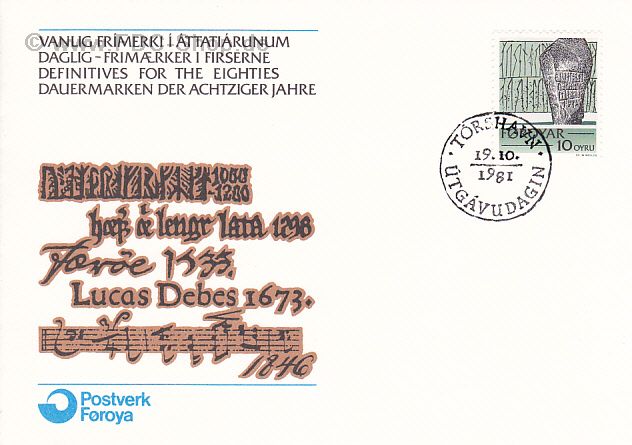 © www.FDC-Shop.de
VANLIG FRÍMERKI Í ÁTTATIÁRUNUM
DAGLIG-FRIMÆRKER I FIRSERNE
DEFINITIVES FOR THE EIGHTIES
DAUERMARKEN DER ACHTZIGER JAHRE
FØROYAR
10 OYRU
· TÓRSHAVN ·
19.10.
1981
ÚTGÁVUDAGIN
1000
1200
lengr lata 1298
Færøe 1535.
Lucas Debes 1673.
1846
Postverk
Føroya